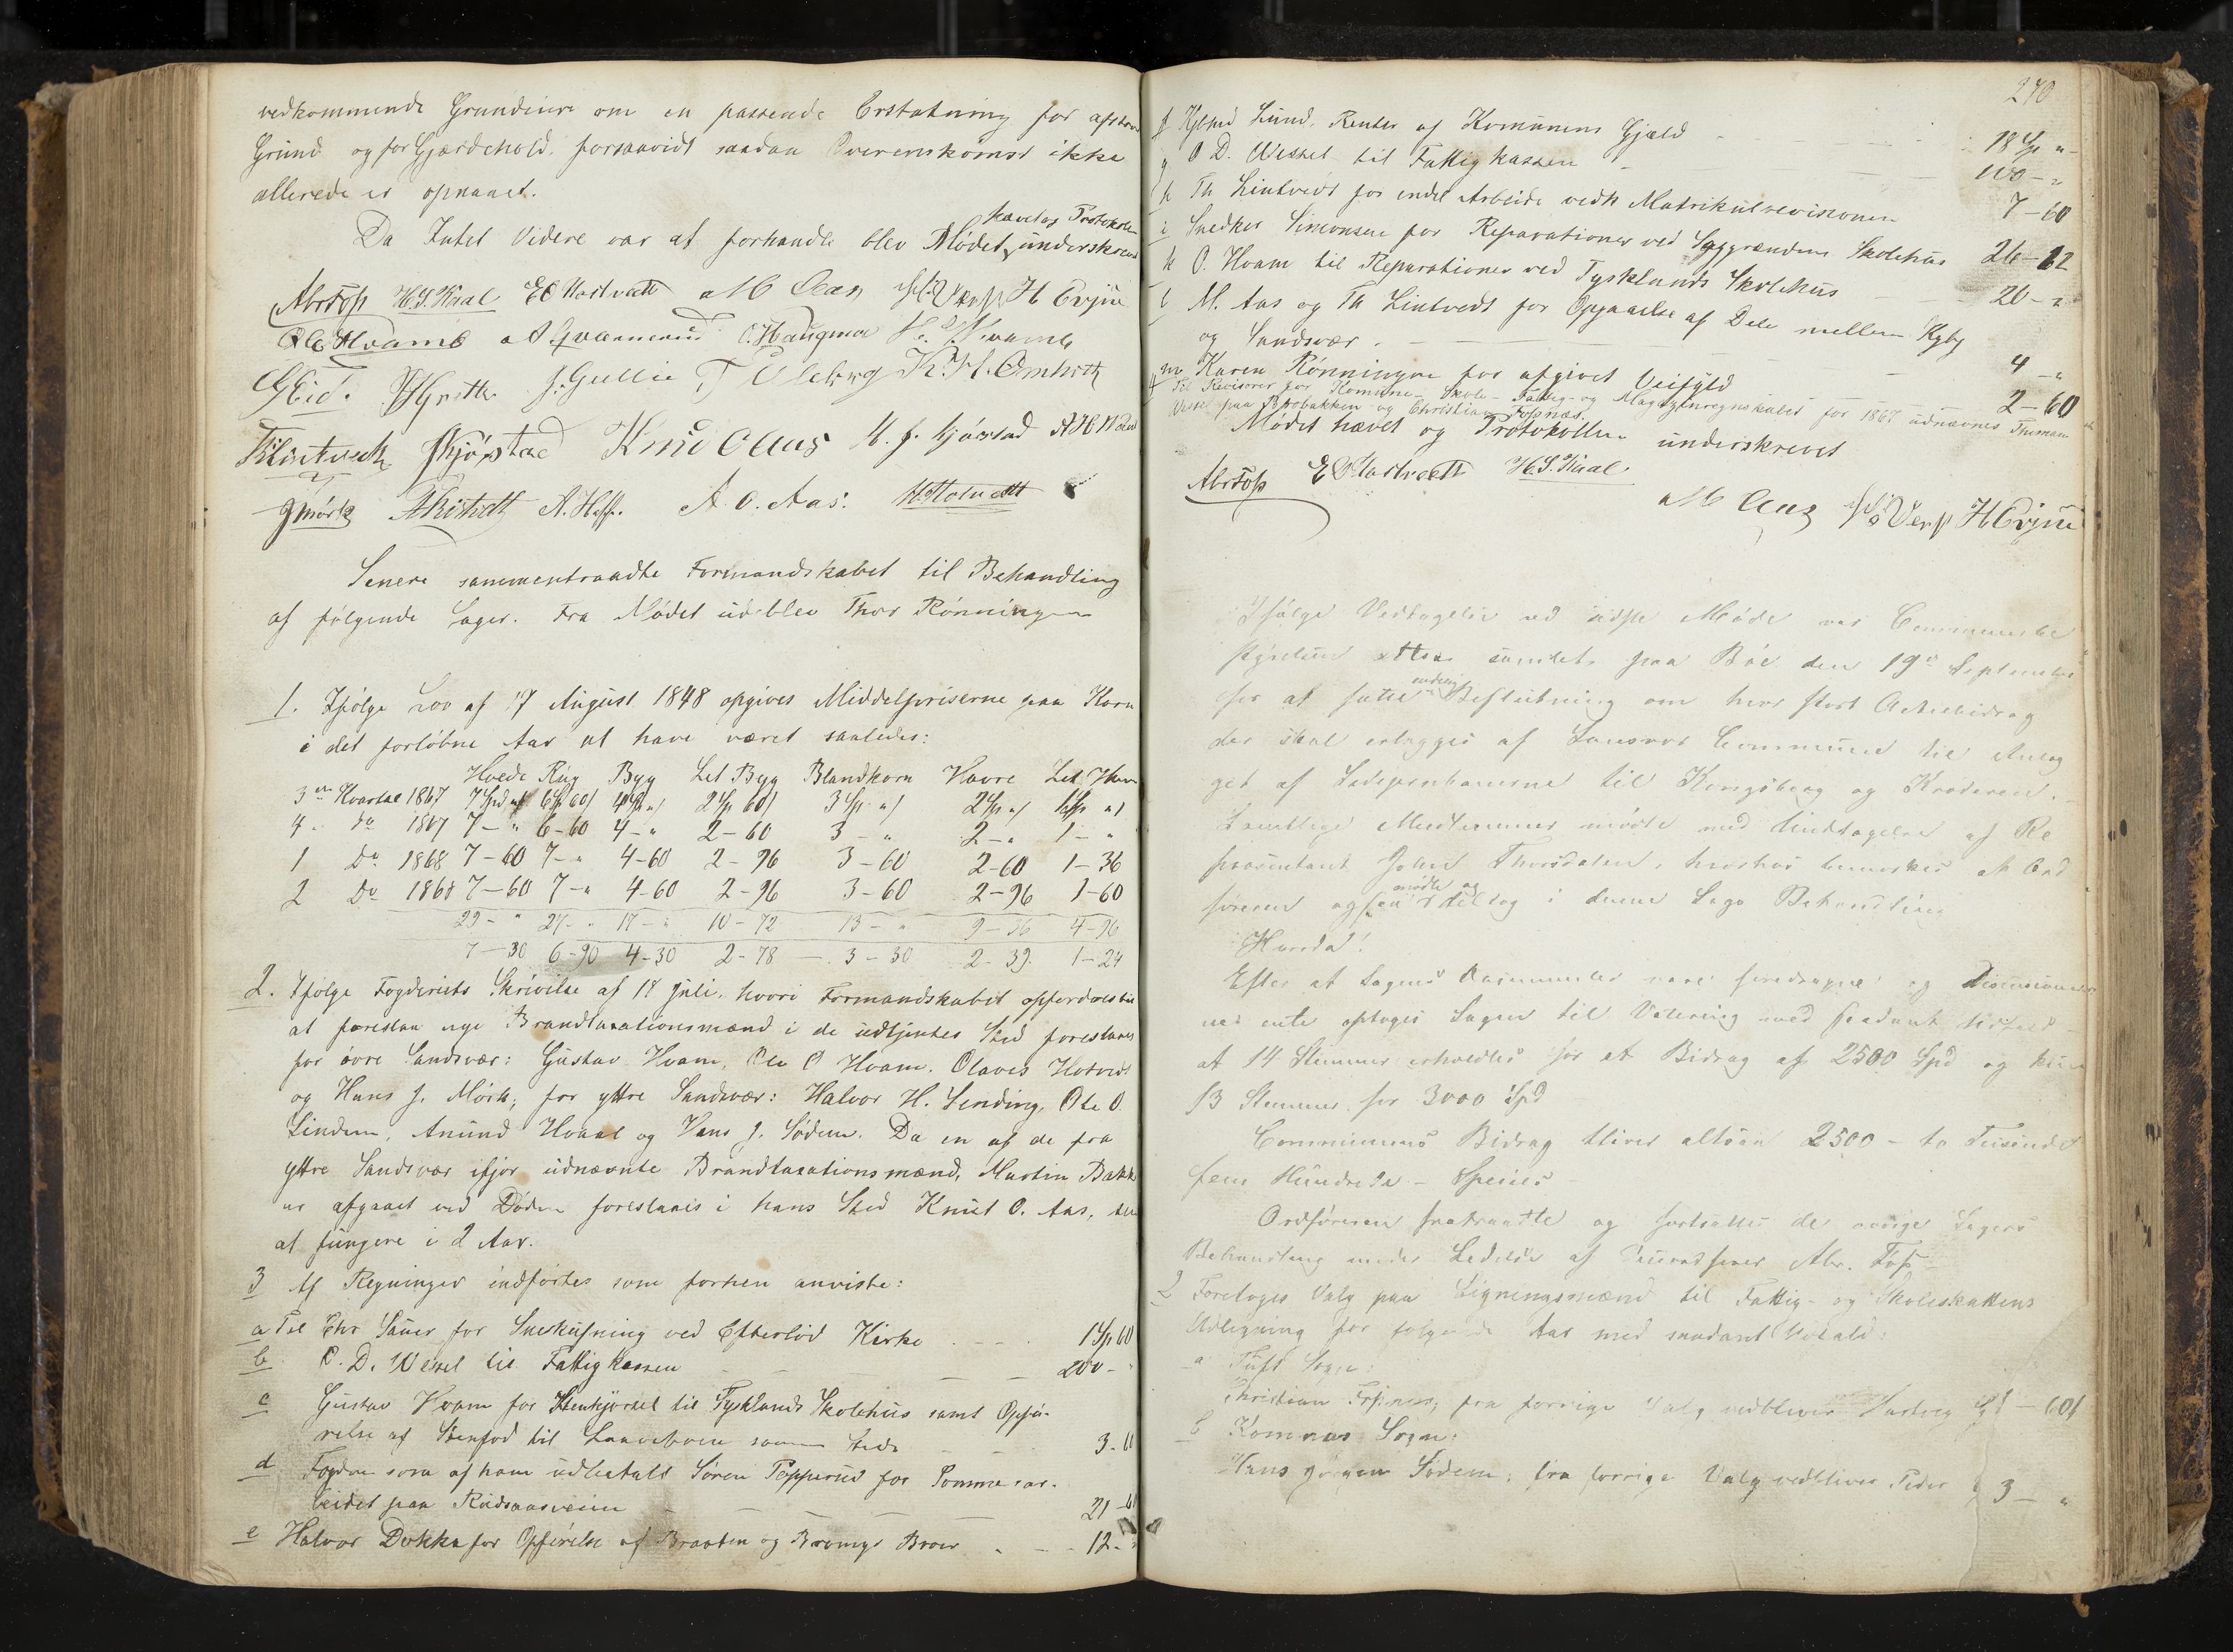 vedkommende Grundeiere om en passende Erstatning for
Grund og for Gjærdehold, forsaavidt saadan Overenskomst ikke
allerede er opnaaet.
hævet og Protokollen
Da Intet Videre var at forhandle blev Mødet underskrevet
Abr Fosz H.S. Kaal E O Hostvedt M Aas H Evju
Ole Hvamb O. Haugmoe
J. Gullie T Uleberg
Skjøstad Knud Aas H. J. Kjørstad
J Mørk A. Hoff. A. O. Aas. H. Hotvedt
Senere sammentraadte Formandskabet til Behandling
af følgende Sager. Fra Mødet udeblev Thor Rønningen
1. Ifølge Lov af 17 August 1848 opgives Middelpriserne paa Korn
i det forløbne Aar at have været saaledes:
Hvede Rug Byg Let Byg Blandkorn Havre Let Havre
3die Kvartal 1867 7 Spd " 6 Sp 60 4 Sp " 2 Sp 60 3 Sp " 2 Sp " 1 Sp "
4 do 1867 7 - " 6-60 4 - " 2-60 3 - " 2 - " 1 - "
1 Do 1868 7-60 7 - " 4-60 2-96 3-60 2-60 1-36
2 Do 1868 7-60 7 - " 4-60 2-96 3-60 2-96 1-60
29 - " 27 - " 17 - " 10-72 13 - " 9-36 4-96
7-30 6-90 4-30 2-78 3-30 2-39 1-24
2. Ifølge Fogderiets Skrivelse af 18 Juli, hvori Formandskabet opfordres til
at foreslaa nye Brandtaxationsmænd i de udtjentes Sted foreslaaes
for øvre Sandsvær: Gustav Hvam, Ole O Hvam, Olaves Hotvedt
og Hans J. Mörk; for yttre Sandsvær: Halvor H. Sending, Ole O.
Lindem, Anund Hvaal og Hans J. Södem. Da en af de fra
yttre Sandsvær ifjor udnævnte Brandtaxationsmænd, Martin Bakke
er afgaaet ved Døden foreslaaes i hans Sted Knut O. Aas, til
at fungere i 2 Aar.
3 Af Regninger indførtes som forhen anviste:
a Til Chr Sauer for Sneskufning ved Efteløt Kirke 1 Sp 60
b O. D. Wessel til Fattigkassen 200 - "
c Gustav Hvam for Stenkjørsel til Tysklands Skolehus samt Opfø-
relse af Stenfod til Laavebroen samme Sted 3-60
d Fogden som af ham udbetalt Søren Pepperud for Sommerar-
beidet paa Rudsaasveien 21-60
e Halvor Dokka for Opførelse af Braaten og Bævinge Broer 12 - "
270
f Kjøbmd Lund, Renter af Komunens Gjæld 18 Sp "
g O D. Wessel til Fattigkassen 100 - "
h Th Lintvedt for endel Arbeide vedk Matrikulrevisionen 7-60
i Snedker Simonsen for Reparationer ved Sagrændens Skolehus 26-12
k O. Hvam til Reparationer ved Tysklands Skolehus 20 - "
l M. Aas og Th Lintvedt for Opgaaelse af Dele mellem Kgbg
og Sandsvær. 4 - "
m Karen Rønningen for afgivet Veifyld 2-60
4 Til Revisorer for Komune- Skole- Fattig- og Magazinregnskabet for 1867 udnævnes Thoman
paa Brobakken og Christian Fosnæs.
Mødet hævet og Protokollen underskrevet
Abr Fosz E O Hostvedt H.S. Kaal
M Aas H Evju
Ifølge Vedtagelse ved sidste Møde var Communebe
styrelsen atter samlet paa Bøe den 19de September
for at fatte endelig Beslutning om hvor stort Actiebidrag
der skal erlægges af Sandsvær Commune til Anlæg
get af Sidejernbanerne til Kongsberg og Krøderen.
Samtlige Medlemmer mødte med Undtagelse af Re
præsentant John Thorsdalen, hvorhos bemerkes at Ord
føreren ogsaa mødte og deltog i denne Sags Behandling
Efter at Sagens Documenter vare foredragne og Discussionen
var endt optoges Sagen til Votering med saadant Udfald
at 14 Stemmer erholdtes for et Bidrag af 2500 Spd og kun
13 Stemmer for 3000 Spd
Communens Bidrag bliver altsaa 2500 - to Tusinde
fem Hundrede - Species -
Ordføreren fratraadte og fortsattes de øvrige Sagers
Behandling under Ledelse af Viceordfører Abr. Fosz
2 Foretoges Valg paa Ligningsmænd til Fattig- og Skoleskattens
Udligning for følgende Aar med saadant Udfald:
a Tuft Sogn:
Christian Fosnes; fra forrige Valg vedbliver Hartvig 1-60
b Komnæs Sogn:
Hans Jørgen Södem; fra forrige Valg vedbliver Peder 3 - "